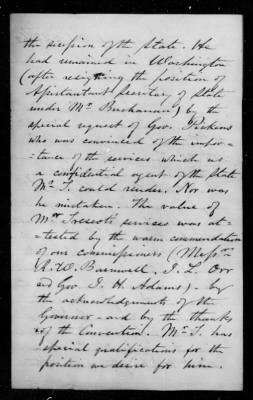 the secession of the State. He
had remained in Washington
(after resigning the position of
Assistant Secretary of State
under Mr. Buchanan) by the
special request of Gov. Pickens
who was convinced of the impor-
-tance of the services which as
a confidential agent of the State
Mr T. could render. Nor was
he mistaken. The value of
Mr Trescot's services was at-
-tested by the warm commendation
of our commissioners (Messrs
R. W. Barnwell, J. L. Orr
and Gov. J. H. Adams) - by
the acknowledgements of the
Governor - and by the thanks
of the Convention. Mr. T. has
special qualifications for the
position we desire for him.